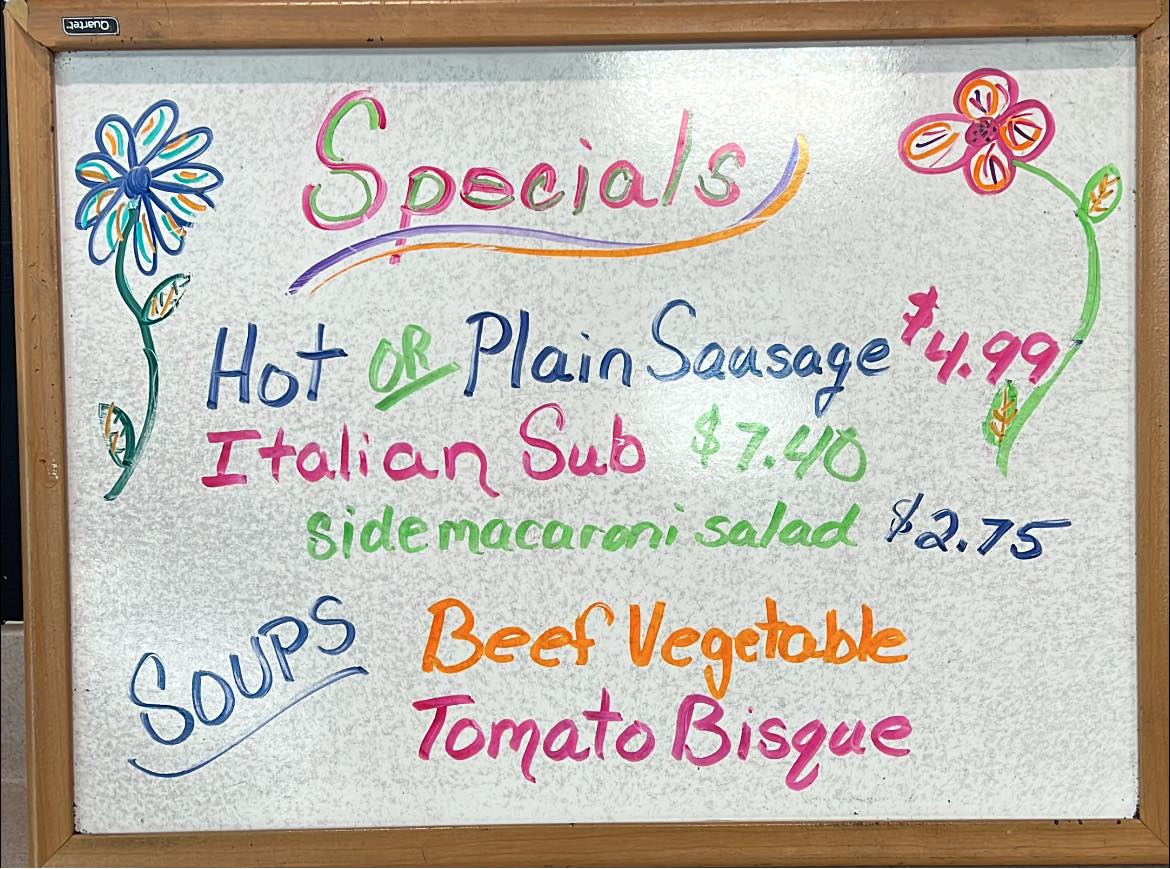 Quartet
Specials
Hot OR Plain Sausage $4.99
Italian Sub $7.40
side macaroni salad $2.75
SOUPS
Beef Vegetable
Tomato Bisque